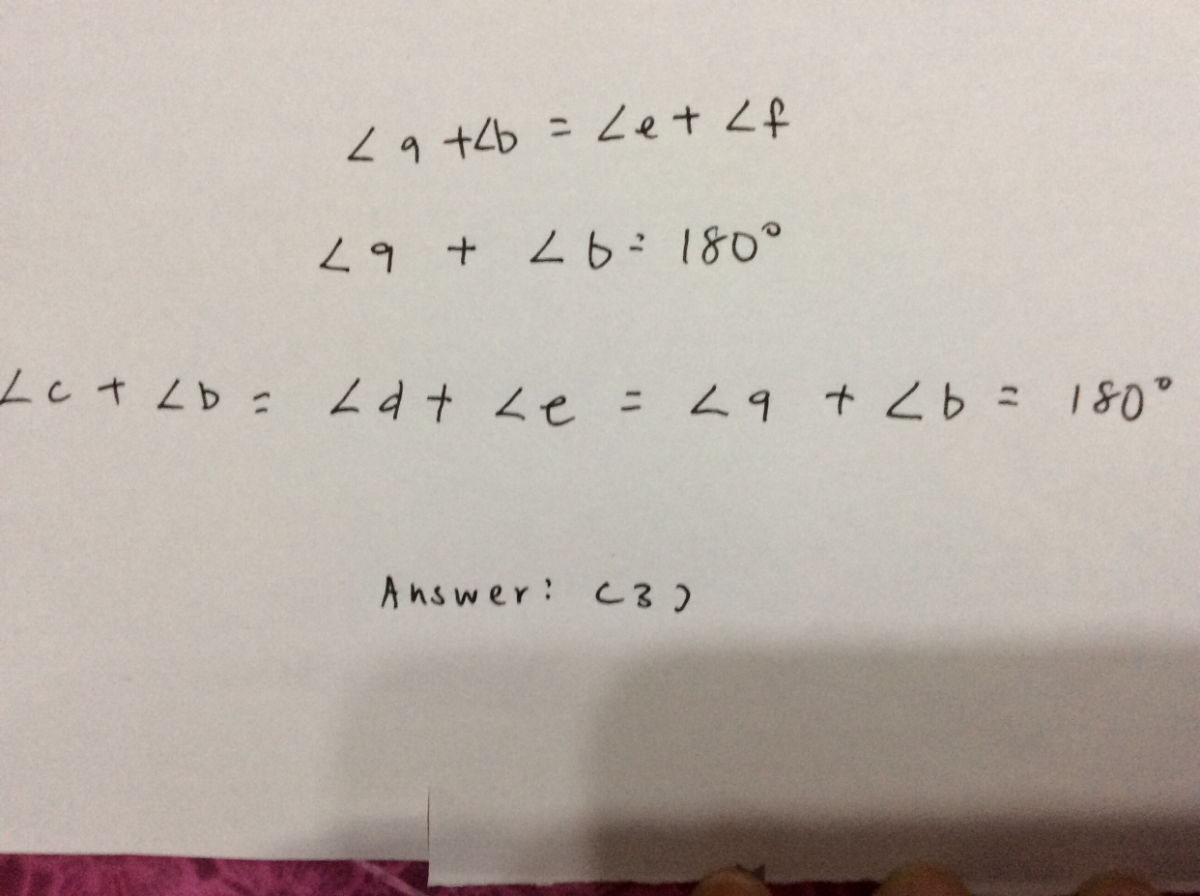 ∠a + ∠b = ∠e + ∠f
∠a + ∠b = 180°
∠c + ∠b = ∠d + ∠e = ∠a + ∠b = 180°
Answer: (3)